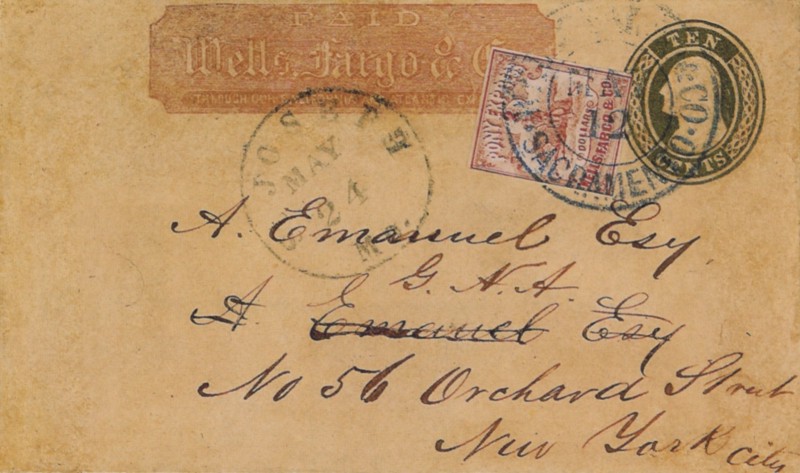 PAID
Wells, Fargo & Co
TEN
CENTS
PONY EXPRESS
DOLLARS
WELLS, FARGO & CO
12
SACRAMEN
JOSEPH
MAY
24
Mo.
A. Emanuel Esq.
G. N. A.
A. Emanuel Esq
No 56 Orchard Street
New York City